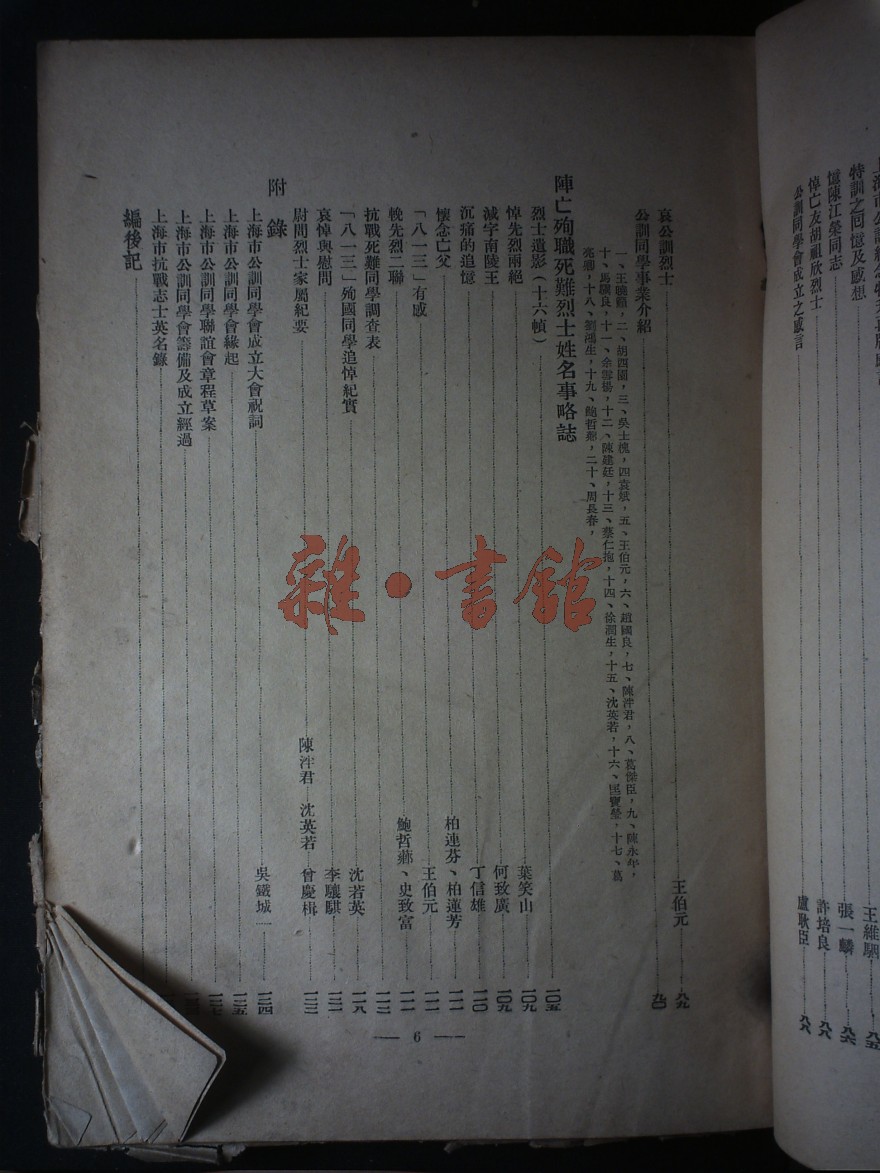 特訓之回憶及感想 王維駰 八五
憶陳江榮同志 張一麟 八六
悼亡友胡祖欣烈士 許培良 八八
公訓同學會成立之感言 盧耿臣 八八
哀公訓烈士 王伯元 八九
公訓同學事業介紹 九〇
一、王曉籟，二、胡四園，三、吳士槐，四袁斌，五、王伯元，六、趙國良，七、陳泮君，八、葛傑臣，九、陳永年，
十、馬驥良，十一、余雲揚，十二、陳建廷，十三、蔡仁抱，十四、徐潤生，十五、沈英若，十六、匡寶瑩，十七、葛
亮卿，十八、劉鴻生，十九、鮑哲薌，二十、周長春，
陣亡殉職死難烈士姓名事略誌
烈士遺影（十六幀） 一〇五
悼先烈兩絕 葉笑山 一〇九
滅字南陵王 何致廣 一〇九
沉痛的追憶 丁信雄 一一〇
懷念亡父 柏連芬、柏蓮芳 一一一
「八一三」有感 王伯元
輓先烈二聯 鮑哲薌、史致富
抗戰死難同學調查表
「八一三」殉國同學追悼紀實 沈若英 一一八
哀悼與慰問 李驤騏
慰問烈士家屬紀要 陳泮君 沈英若 曾慶楫
附錄
上海市公訓同學會成立大會祝詞 吳鐵城 一二四
上海市公訓同學會緣起 一二五
上海市公訓同學聯誼會章程草案
上海市公訓同學會籌備及成立經過
上海市抗戰志士英名錄
編後記
— 6 —
雜·書館